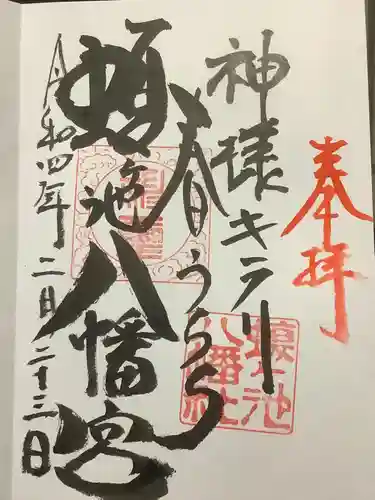 奉拝
神様キラリ
春日うらら
蛭ヶ池八幡宮
令和四年二月二十三日
蛭ヶ池
八幡社